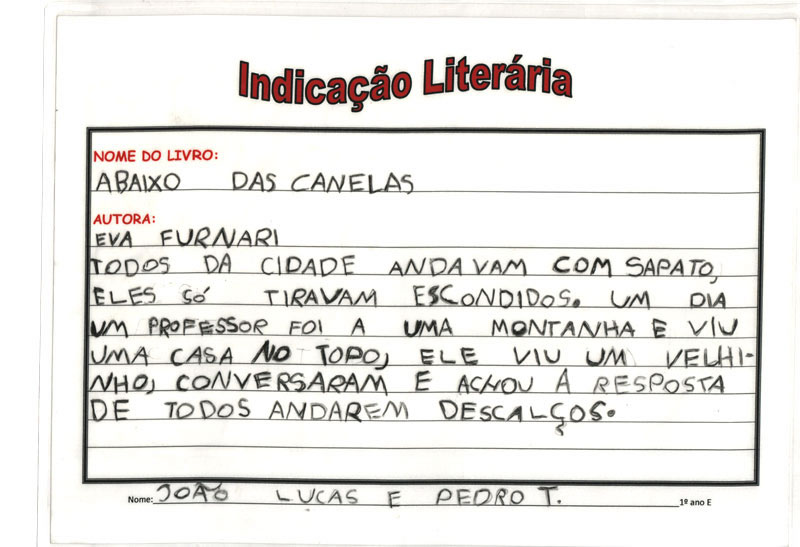 Indicação Literária
NOME DO LIVRO:
ABAIXO DAS CANELAS
AUTORA:
EVA FURNARI
TODOS DA CIDADE ANDAVAM COM SAPATO,
ELES SÓ TIRAVAM ESCONDIDOS. UM DIA
UM PROFESSOR FOI A UMA MONTANHA E VIU
UMA CASA NO TOPO, ELE VIU UM VELHI-
NHO, CONVERSARAM E ACHOU A RESPOSTA
DE TODOS ANDAREM DESCALÇOS.
Nome: JOÃO LUCAS E PEDRO T. 1º ano E